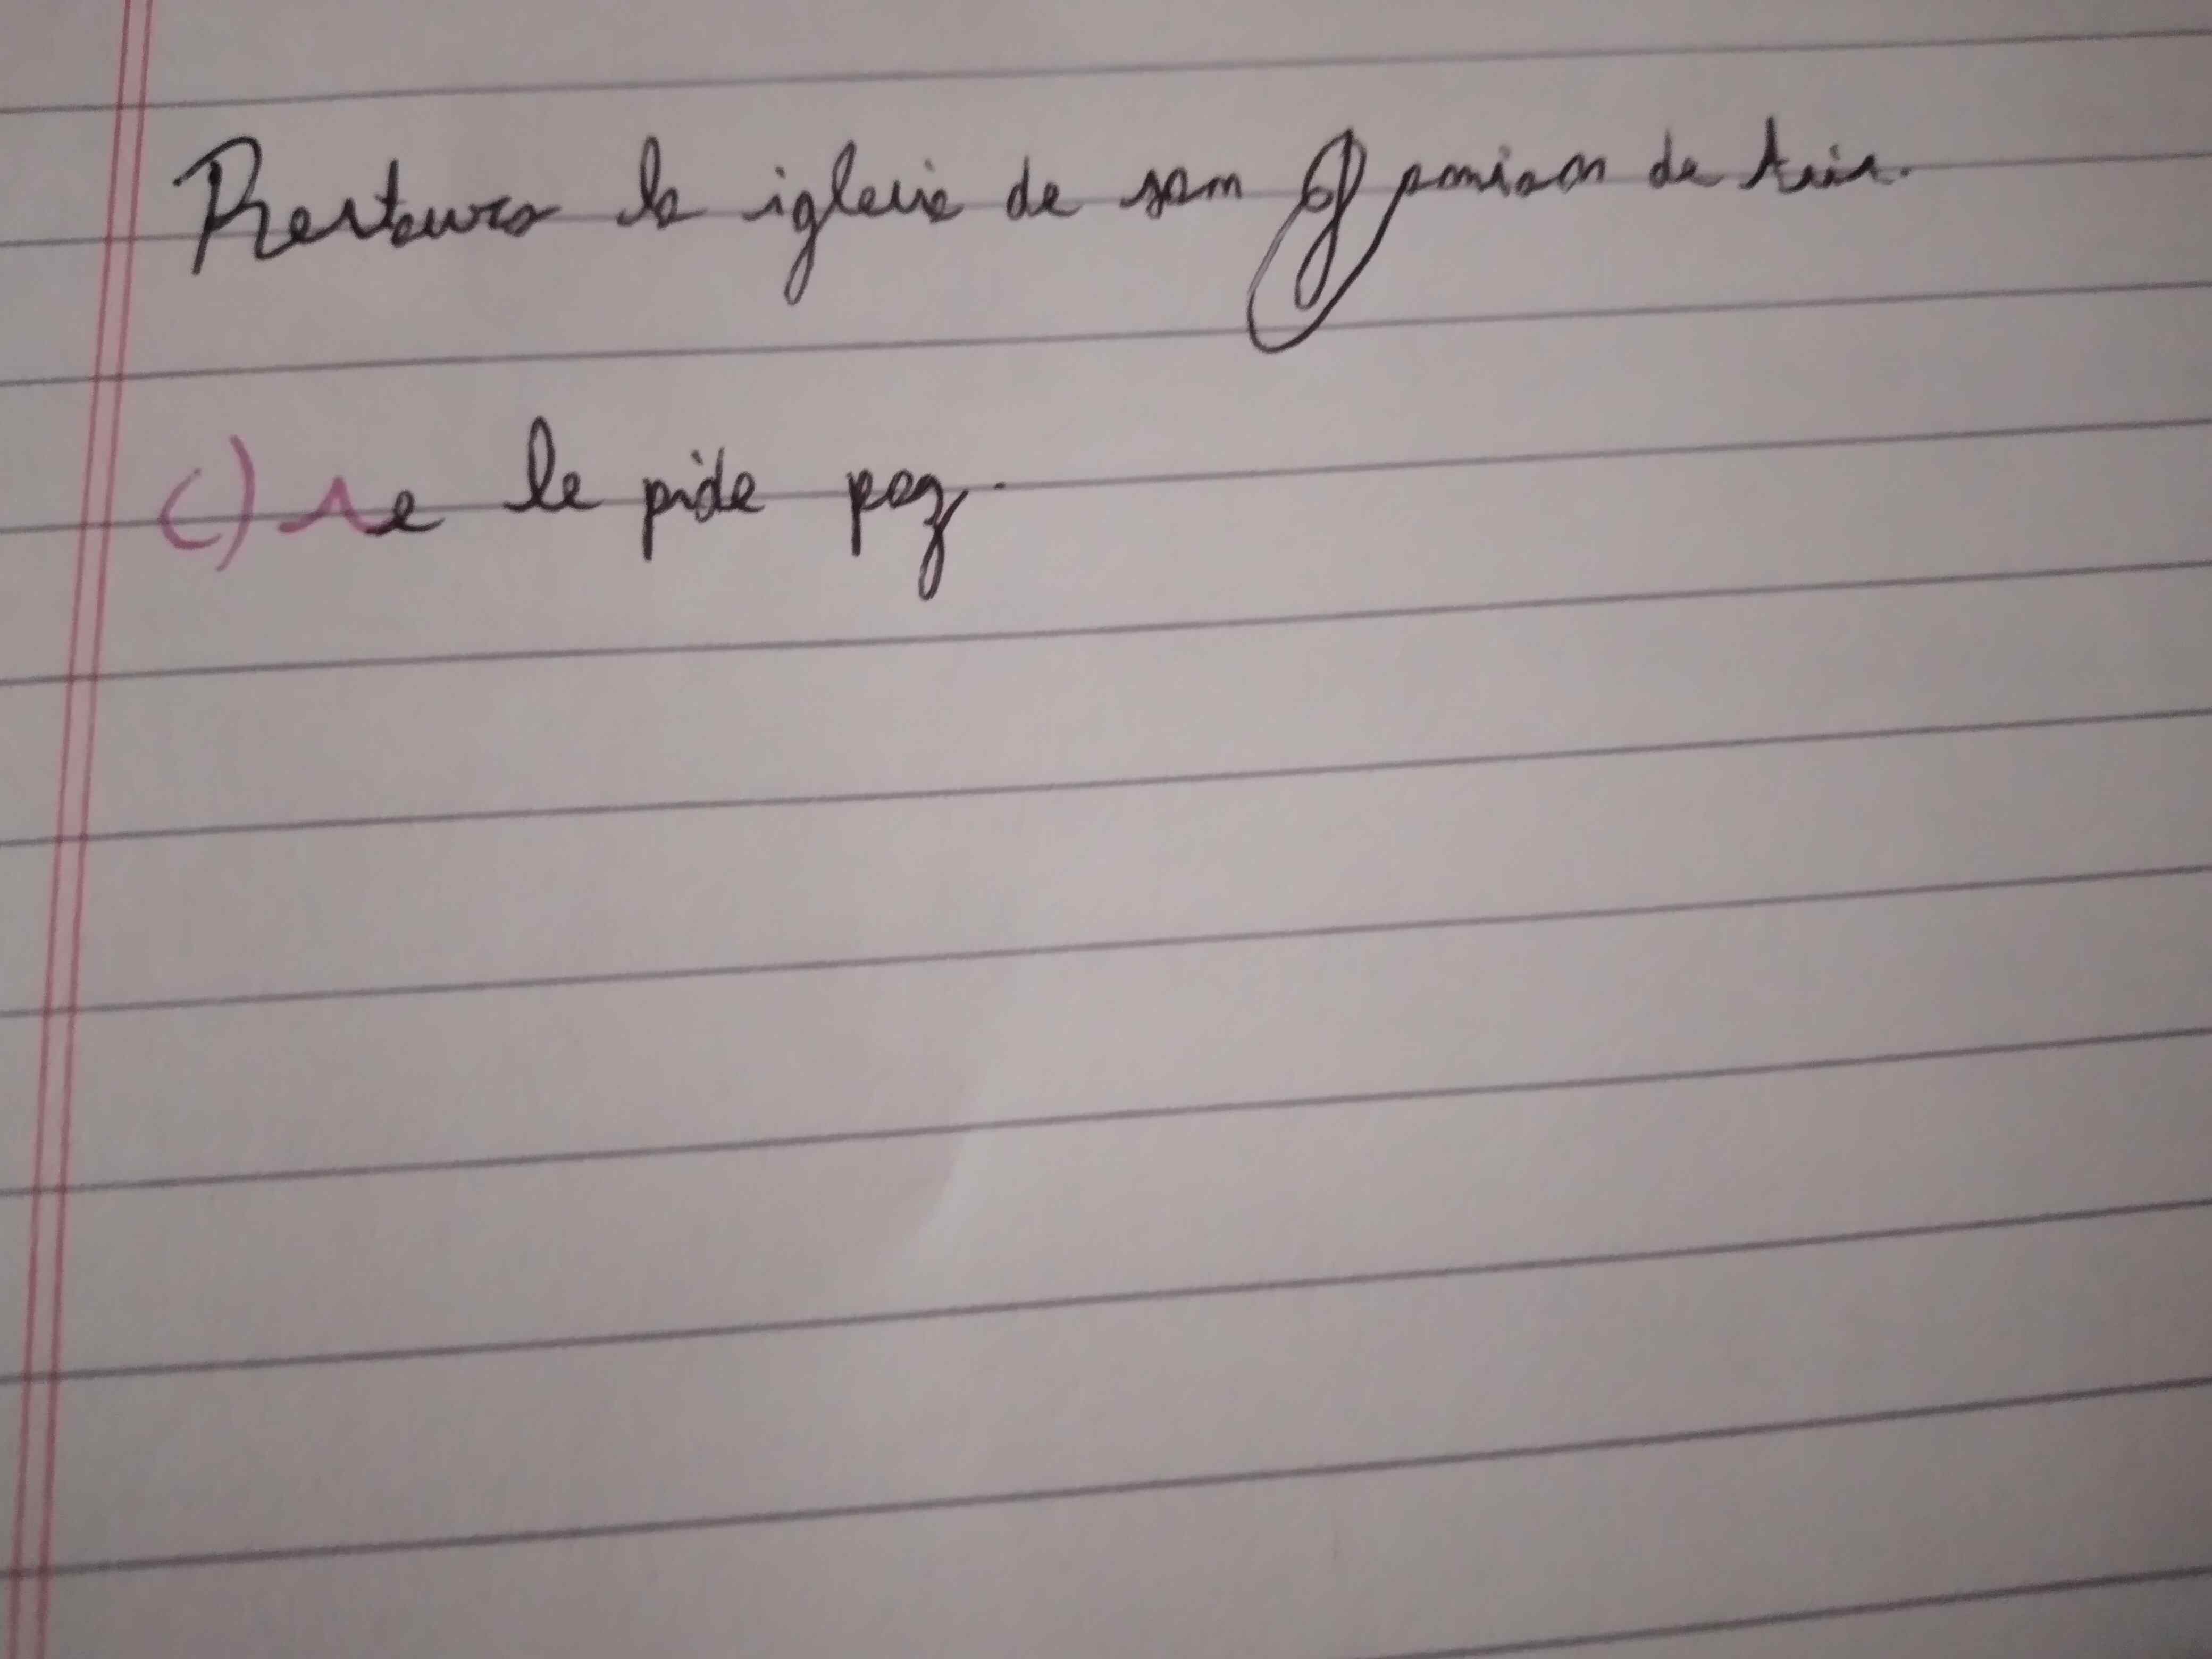 Restaura la iglesia de san de Asis.
c) se le pide paz.